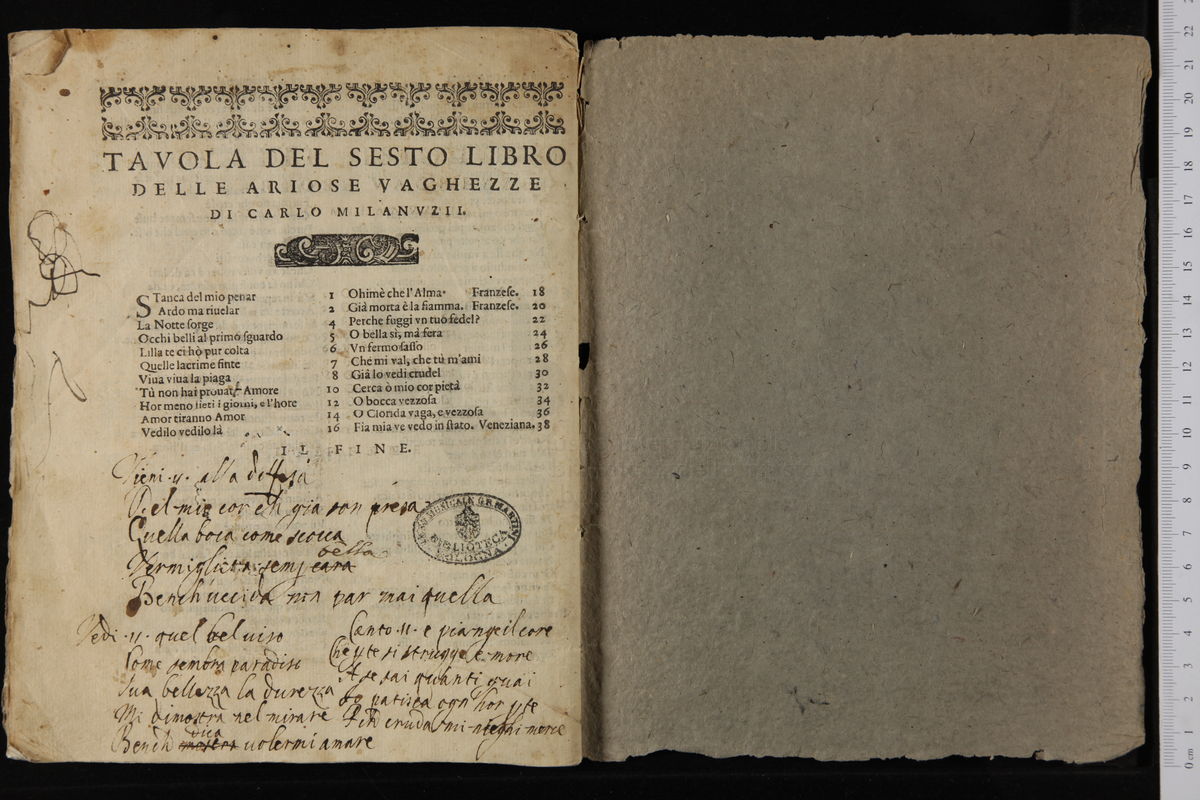 TAVOLA DEL SESTO LIBRO
DELLE ARIOSE VAGHEZZE
DI CARLO MILANVZII.
STanca del mio penar 1
Ardo ma riuelar 2
La Notte sorge 4
Occhi belli al primo sguardo 5
Lilla te ci hò pur colta 6
Quelle lacrime finte 7
Viua viua la piaga 8
Tù non hai prouat' Amore 10
Hor meno lieti i giorni, e l'hore 12
Amor tiranno Amor 14
Vedilo vedilo là 16
Ohimè che l'Alma. Franzese. 18
Già morta è la fiamma. Franzese. 20
Perche fuggi vn tuo fedel? 22
O bella sì, mà fera 24
Vn fermo sasso 26
Che mi val, che tù m'ami 28
Già lo vedi crudel 30
Cerca ò mio cor pietà 32
O bocca vezzosa 34
O Clorida vaga, e vezzosa 36
Fia mia ve vedo in stato. Veneziana. 38
IL FINE.
Vieni .y. alla diffesa
Del mio cor ch già son presa
Quella boca come scocca
bella
Vermiglietta semp cara
Bench uccida non par mai quella
Vedi .y. quel bel uiso
Come sembra paradiso
Sua bellezza la durezza
Mi dimostra nel mirare
dica
Bench mostra uolermi amare
Canto .y. e piange il core
Che p te si strugge e more
A se sai quanti guai
Io patisca ogn'hor p te
Fih cruda mi nieghi merce
LICEO MUSICALE G.B. MARTINI
BIBLIOTECA
BOLOGNA
22
21
20
19
18
17
16
15
14
13
12
11
10
9
8
7
6
5
4
3
2
1
0 cm